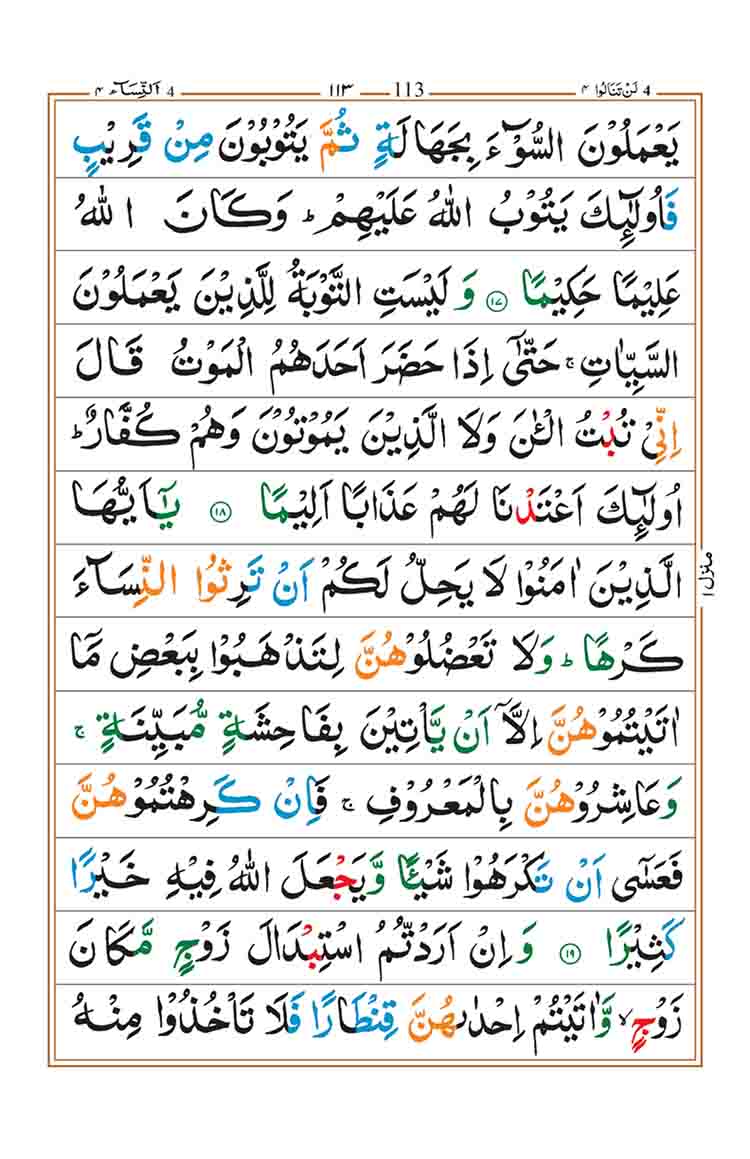 لَنْ تَنَالُوا ٤ 4 113 ١١٣ 4 اَلنِّسَآء ٤
يَعْمَلُوْنَ السُّوْٓءَ بِجَهَالَةٍ ثُمَّ يَتُوْبُوْنَ مِنْ قَرِيْبٍ
فَاُولٰٓئِكَ يَتُوْبُ اللّٰهُ عَلَيْهِمْ ؕ وَكَانَ اللّٰهُ
عَلِيْمًا حَكِيْمًا ۝١٧ وَلَيْسَتِ التَّوْبَةُ لِلَّذِيْنَ يَعْمَلُوْنَ
السَّيِّاٰتِ ۚ حَتّٰٓى اِذَا حَضَرَ اَحَدَهُمُ الْمَوْتُ قَالَ
اِنِّىْ تُبْتُ الْـٰٔنَ وَلَا الَّذِيْنَ يَمُوْتُوْنَ وَهُمْ كُفَّارٌ ؕ
اُولٰٓئِكَ اَعْتَدْنَا لَهُمْ عَذَابًا اَلِيْمًا ۝١٨ يٰٓاَيُّهَا
الَّذِيْنَ اٰمَنُوْا لَا يَحِلُّ لَكُمْ اَنْ تَرِثُوا النِّسَآءَ
كَرْهًا ؕ وَلَا تَعْضُلُوْهُنَّ لِتَذْهَبُوْا بِبَعْضِ مَآ
اٰتَيْتُمُوْهُنَّ اِلَّآ اَنْ يَّاْتِيْنَ بِفَاحِشَةٍ مُّبَيِّنَةٍ ۚ
وَعَاشِرُوْهُنَّ بِالْمَعْرُوْفِ ۚ فَاِنْ كَرِهْتُمُوْهُنَّ
فَعَسٰٓى اَنْ تَكْرَهُوْا شَيْـًٔا وَّيَجْعَلَ اللّٰهُ فِيْهِ خَيْرًا
كَثِيْرًا ۝١٩ وَاِنْ اَرَدْتُّمُ اسْتِبْدَالَ زَوْجٍ مَّكَانَ
زَوْجٍ ۙ وَّاٰتَيْتُمْ اِحْدٰىهُنَّ قِنْطَارًا فَلَا تَاْخُذُوْا مِنْهُ
منزل ١